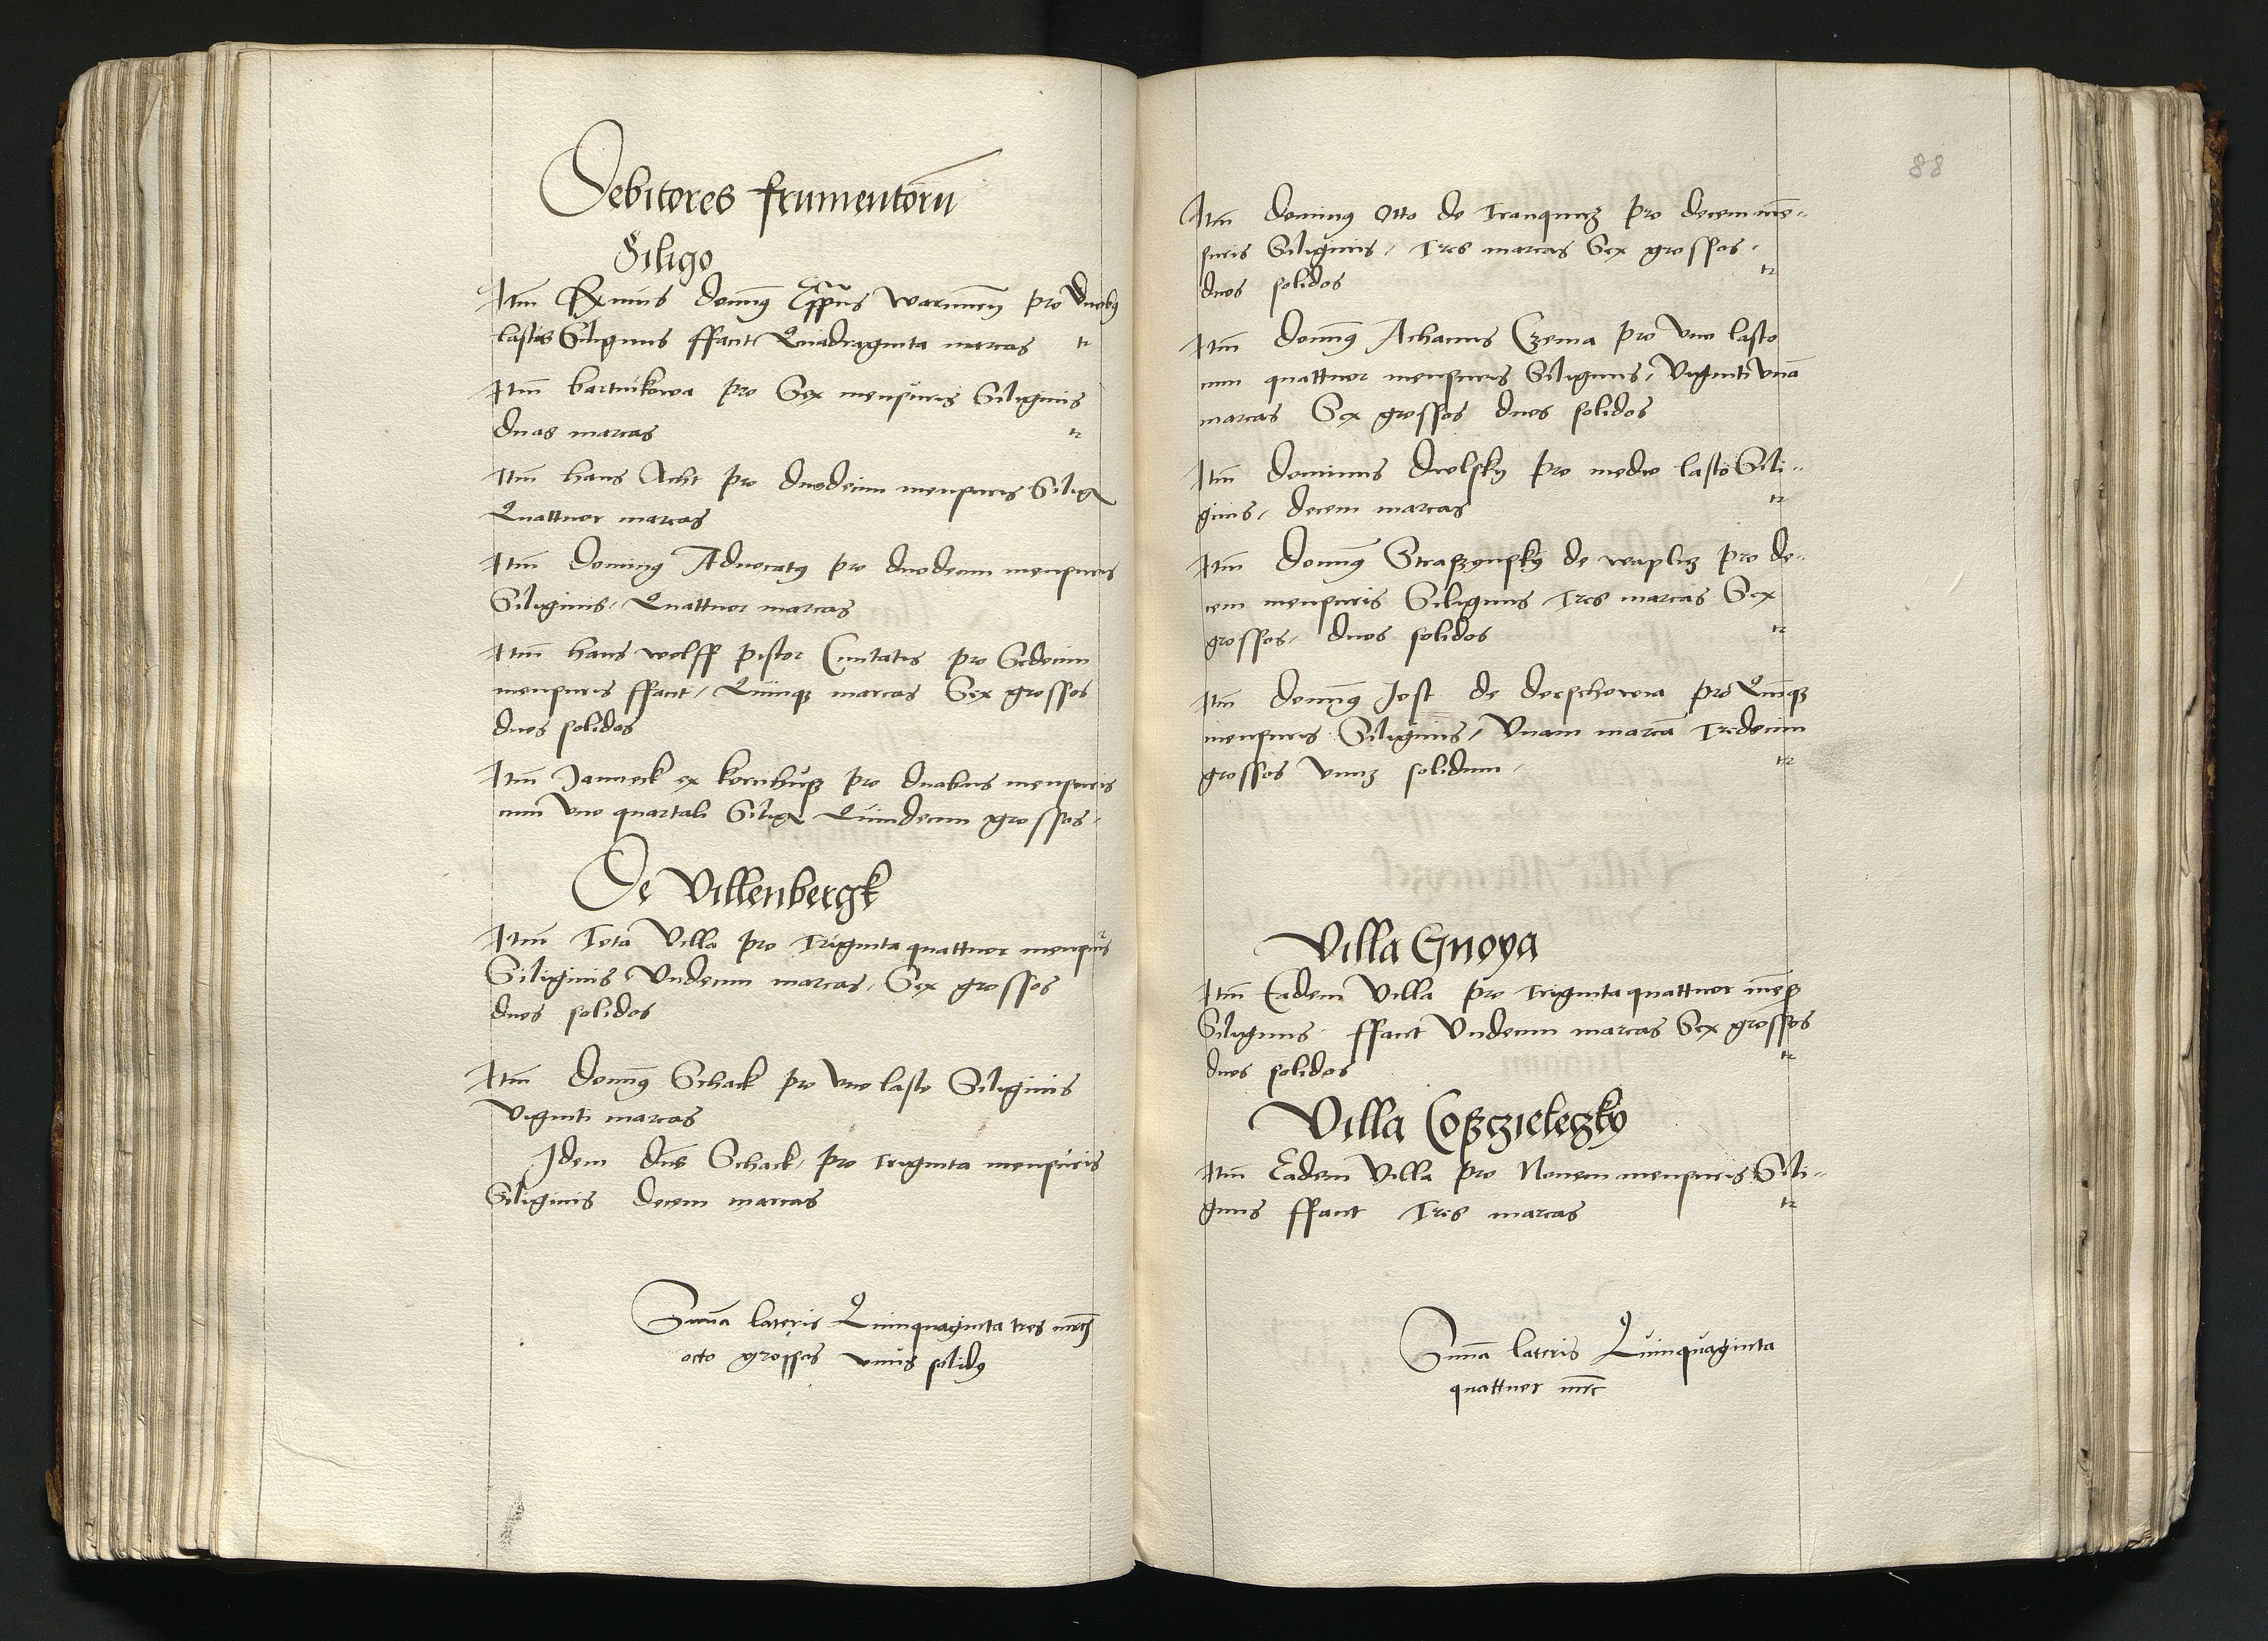 Debitores frumentorū
Siligo
Itm̄ Rx̄mus domin9 Ep̄pus warmien̄ pro duob9
lastis Siliginis ffacit Quadraginta marcas tz
Itm̄ bartnikowa pro Sex mensuris Siliginis
duas marcas tz
Itm̄ hans Acht pro duodecim mensuris Silig
Quattuor marcas
Itm̄ Domin9 Aduocat9 pro duodecim mensuris
Siliginis, Quattuor marcas
Itm̄ hans wolff pistor Ciuitatis pro Sedecim
mensuris ffacit, Quinqz marcas Sex grossos
duos solidos
Itm̄ Janneck ex kornhusz pro duabus mensuris
cum vno quartali Silig Quindecim grossos,
De Villenbergk
Itm̄ Tota Villa pro Triginta quattuor mensuris
Siliginis Vndecim marcas, Sex grossos
duos solidos
Itm̄ domin9 Schack pro vno lasto Siliginis
Viginti marcas
Idem dn̄s Schack, pro triginta mensuris
Siliginis decem marcas
Sum̄a lateris Quinquaginta tres mrc
octo grossos vnus solid9
88
Itm̄ domin9 Otto de Tranqwicz pro decem mē-
suris Siliginis, Tres marcas Sex grossos,
duos solidos tz
Itm̄ domin9 Achacius Czema pro Vno lasto
cum quattuor mensuris Siliginis, Viginti vnā
marcas Sex grossos duos solidos
Itm̄ dominus dwolsky pro medio lasto Sili-
ginis, decem marcas tz
Itm̄ domin9 Straszynsky de waplicz pro de-
cem mensuris Siliginis Tres marcas Sex
grossos, duos solidos tz
Itm̄ domin9 Jost de derschowa pro Quinqz
mensuris Siliginis, Vnam marcā Tredecim
grossos vnuz solidum, tz
Villa Gnoya
Itm̄ Eadem Villa pro triginta quattuor mens
Siliginis ffacit Vndecim marcas Sex grossos
duos solidos tz
Villa Coszczieleczky
Itm̄ Eadem Villa pro Nouem mensuris Sili-
ginis ffacit Tres marcas tz
Sum̄a lateris Quinquaginta
quattuor mrc